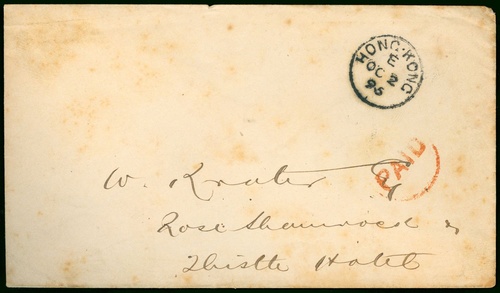 HONG-KONG
E
OC 2
95
PAID
W. Krater
Rose Shamrock &
Thistle Hotel